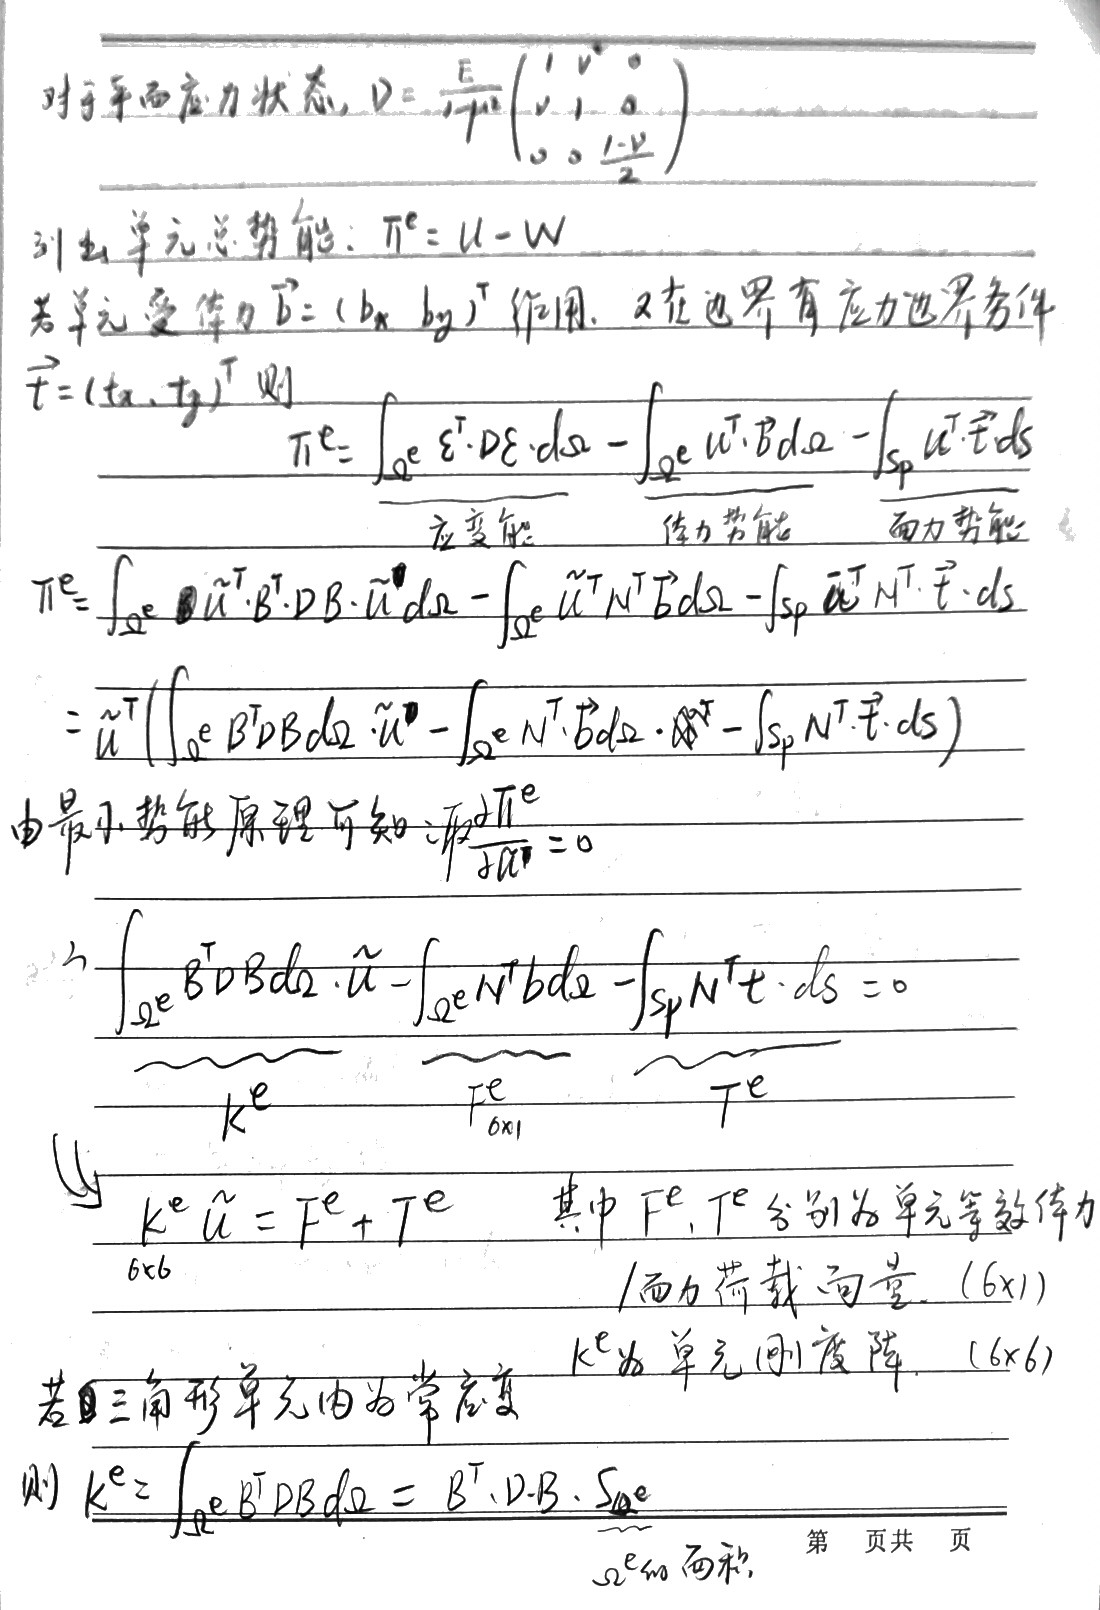 对于平面应力状态, D = E/(1-μ²) (1 ν 0
ν 1 0
0 0 (1-ν)/2)
列出单元总势能: Πᵉ = U - W
若单元受体力 b⃗ = (bx by)ᵀ 作用. 又在边界有应力边界条件
t⃗ = (tx、ty)ᵀ 则
Πᵉ = ∫Ωᵉ εᵀ·Dε·dΩ - ∫Ωᵉ uᵀ·b⃗dΩ - ∫Sp uᵀ·t⃗·ds
应变能 体力势能 面力势能
Πᵉ = ∫Ωᵉ ũᵀ·Bᵀ·DB·ũ dΩ - ∫Ωᵉ ũᵀNᵀb⃗dΩ - ∫Sp ũᵀNᵀ·t⃗·ds
= ũᵀ(∫Ωᵉ BᵀDBdΩ·ũ - ∫Ωᵉ Nᵀ·b⃗dΩ · - ∫Sp Nᵀ·t⃗·ds)
由最小势能原理可知:取 ∂Πᵉ/∂ũ = 0
∫Ωᵉ BᵀDBdΩ·ũ - ∫Ωᵉ NᵀbdΩ - ∫Sp Nᵀt·ds = 0
Kᵉ Fᵉ 6x1 Tᵉ
Kᵉ ũ = Fᵉ + Tᵉ 其中 Fᵉ、Tᵉ 分别为单元等效体力
6x6
/面力荷载向量. (6x1)
Kᵉ为单元刚度阵. (6x6)
若三角形单元内为常应变
则 Kᵉ = ∫Ωᵉ BᵀDBdΩ = Bᵀ·D·B·SΩᵉ
Ωᵉ的面积
第 页共 页